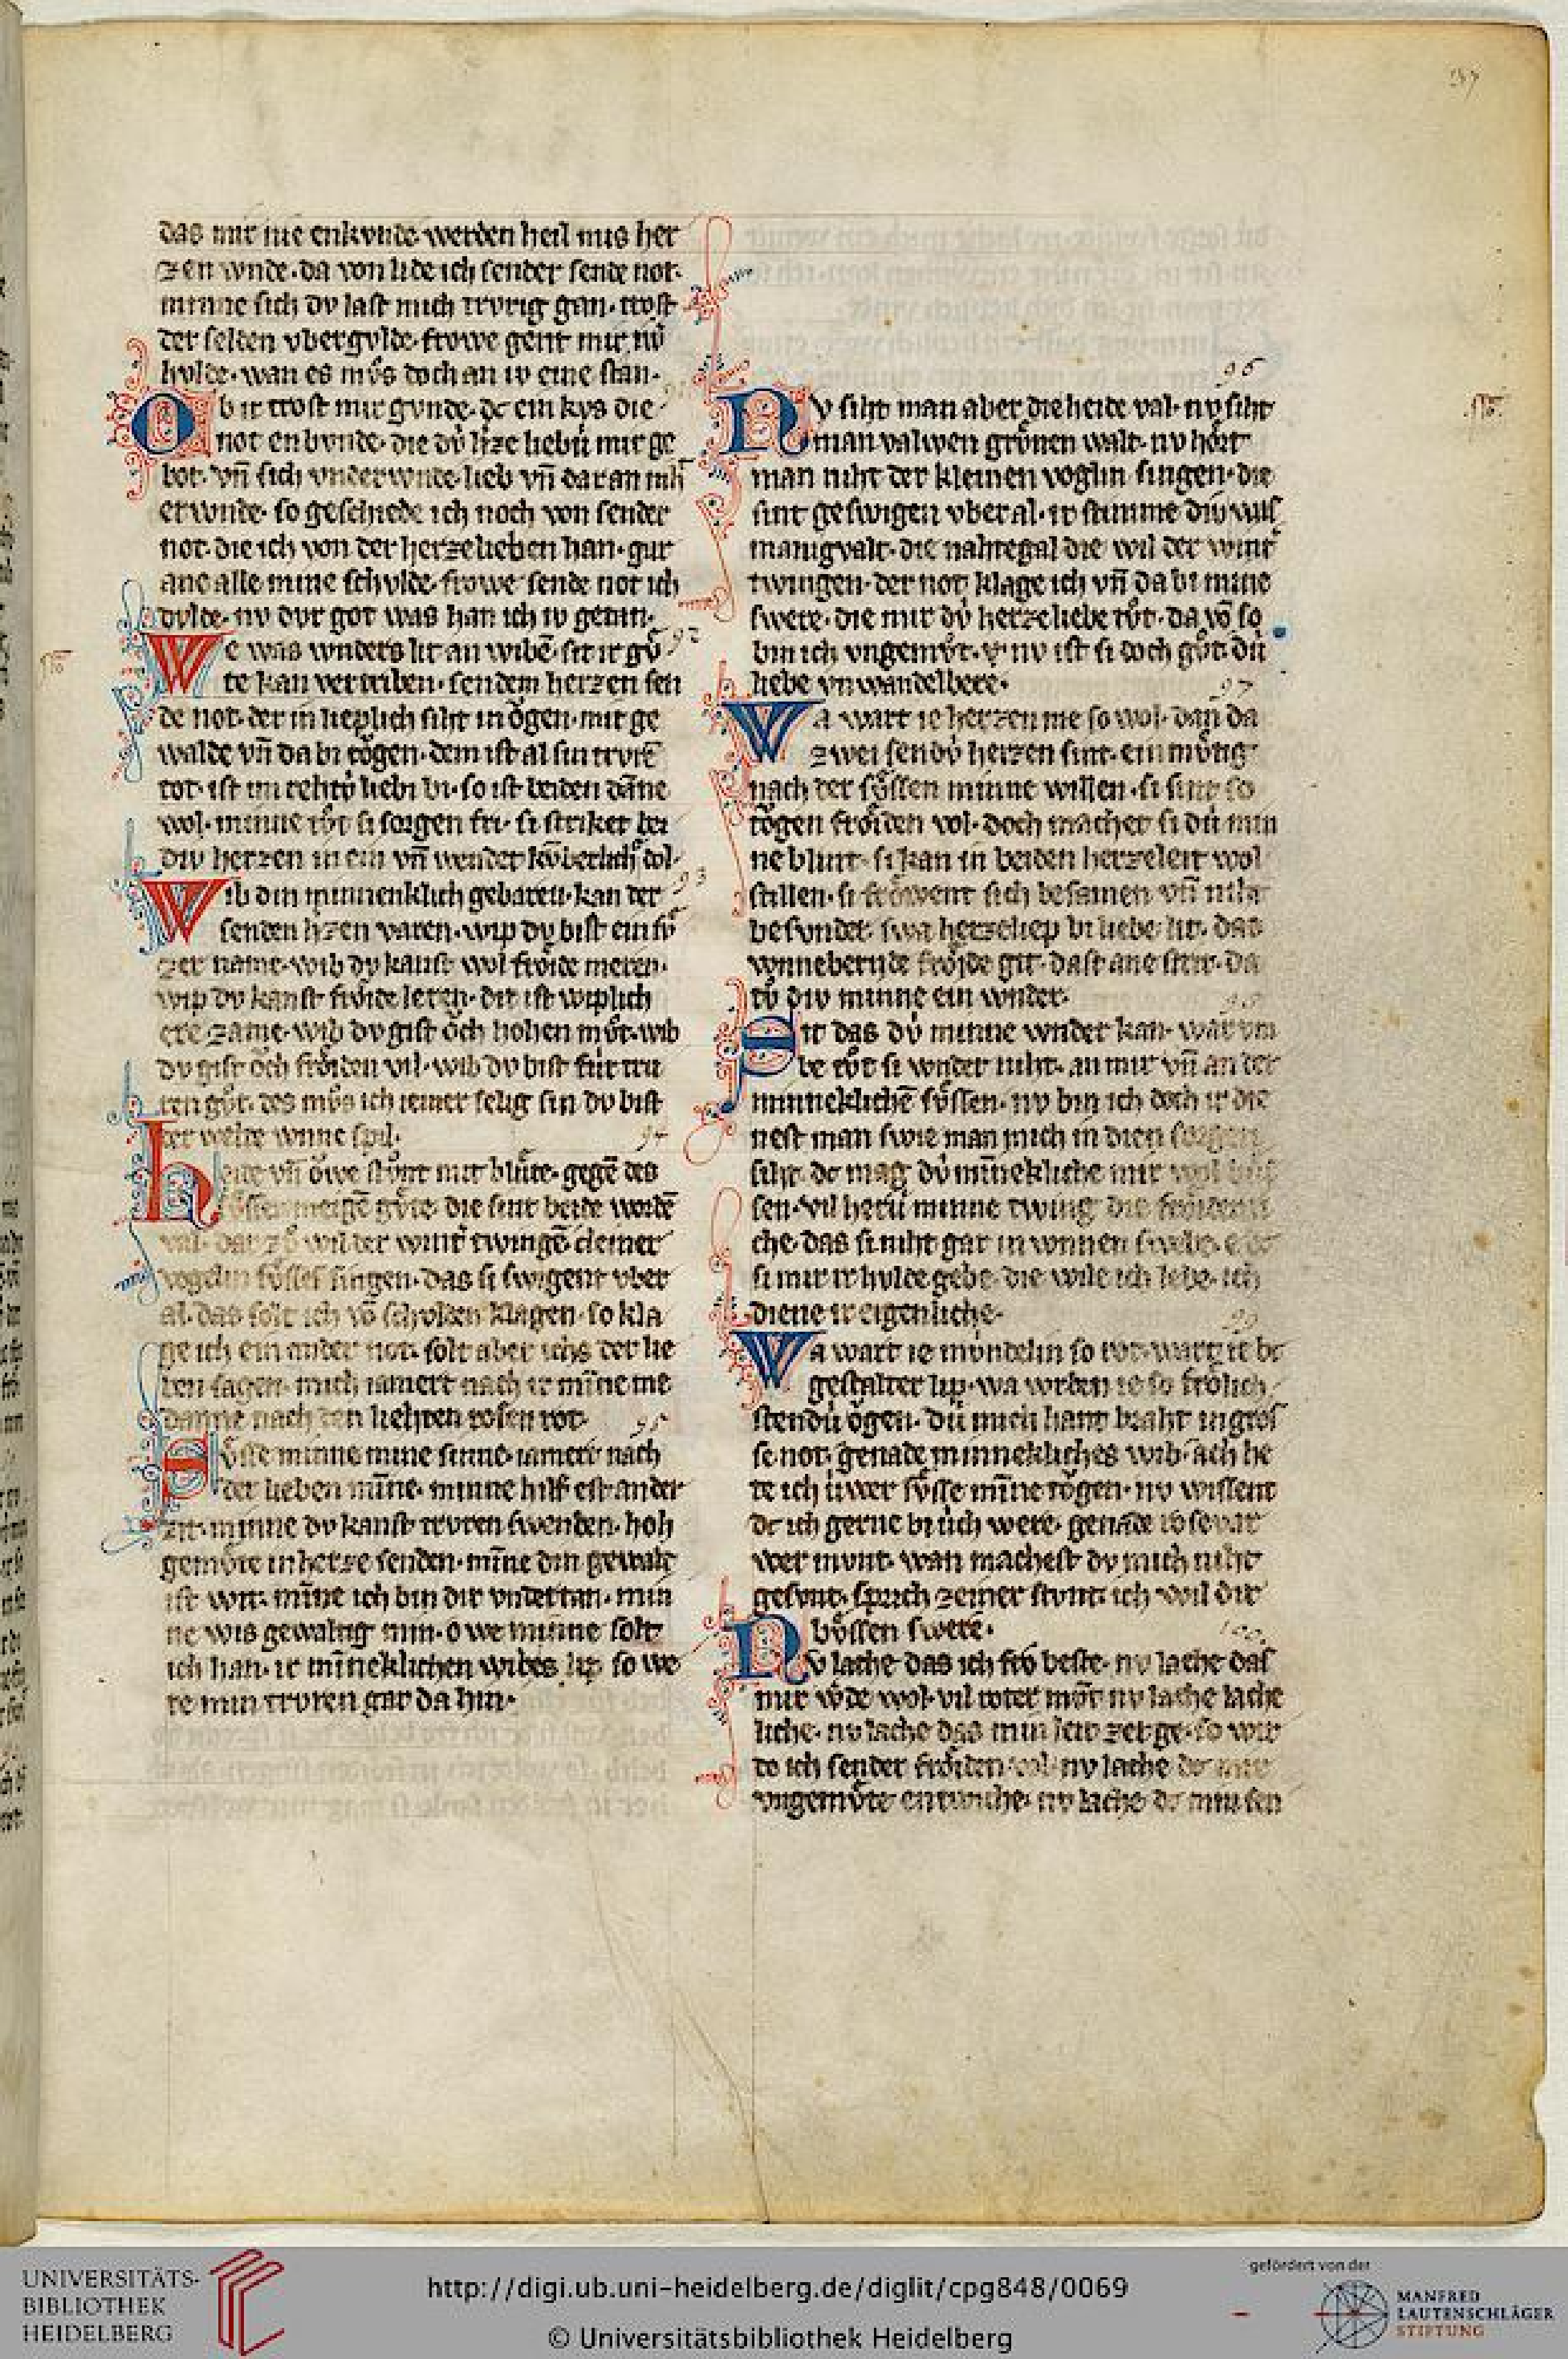 das mir nie enkvnde werden heil mis her
zen wnde. da von lide ich sender sende not.
minne sich dv last mich trvrig gan. trost
der selden vbergvlde. frowe gent mir nv̍
hvlde. wan es mvͦs doch an iv eine stan.
Ob ir trost mir gvnde. dc ein kvs die
not enbvnde. die dv̍ h̍ze liebv̍ mir ge
bot. vn̄ sich vnderwnde. lieb vn̄ dar an niht
erwnde. so geschiede ich noch von sender
not. die ich von der herzelieben han. gar
ane alle mine schvlde. frowe sende not ich
dvlde. nv dvr got was han ich iv getan.
We was wnders lit an wibē. sit ir gvͤ
te kan vertriben. sendem herzen sen
de not. der in lieplich siht in oͮgen. mit ge
walde vn̄ da bi toͮgen. dem ist al sin trvrē
tot. ist im rehtv̍ liebi bi. so ist beiden dāne
wol. minne tvͦt si sorgen fri. si striket bei
div herzen in ein vn̄ wendet
Wib din minnenklich gebaren. kan der
senden h̍zen varen. wip dv bist ein svͤ
zer name. wib dv kanst wol froͤide meren.
wip dv kanst froͤide leren. dir ist wiplich
ere zame. wib dv gist oͮch hohen mvͦt. wib
dv gist oͮch froͤiden vil. wib dv bist fúr trv
ren gvͦt. des mvͦs ich iemer selig sin dv bist
der welte wnne spil.
Heide vn̄ oͮwe stvͦnt mit blvͤte. gegē des
svͤssen meigē gvͤte. die sint beide wordē
val. dar zvͦ wil der wint̍ twingē. cleiner
vogelin svͤsses singen. das si swigent vber
al. das solt ich vō schvlden klagen. so kla
ge ich ein ander not. solt aber ichs der lie
ben sagen. mich iamert nach ir mīne me
danne nach den liehten rosen rot.
Svͤsse minne mine sinne. iamert nach
der lieben mīne. minne hilf est an der
zit. minne dv kanst trvren swenden. hoh
gemvͤte in herze senden. mīne din gewalt
ist wit. mīne ich bin dir vndertan. min
ne wis gewaltig min. owe minne solt
ich han. ir mīneklichen wibes lip so we
re min trvren gar da hin.
96
Nv siht man aber die heide val. nv siht
man valwen grvͤnen walt. nv hoͤrt
man niht der kleinen voglin singen. die
sint geswigen vber al. ir stimme div was
manigvalt. die nahtegal die wil der wint̍
twingen. der not klage ich vn̄ da bi mine
swere. die mir dv̍ herzeliebe tvͦt. da vō so
bin ich vngemvͦt. nv ist si doch gvͦt. dú
liebe vnwandelbere.
97
Wa wart ie herzen me so wol. dan̄ da
zwei sendv̍ herzen sint. ein mvͤtig
nach der svͤssen minne willen. si sint so
toͮgen froͤiden vol. doch machet si dú min
ne blint. si kan in beiden herzeleit wol
stillen. si froͤwent sich besamen vn̄ niht
besvnder. swa herzeliep bi liebe lit. das
wnneber̄ide froͤide git. dast ane strit. da
tvͦ div minne ein wnder.
Sit das dv̍ minne wnder kan. war vm
be tvͦt si wnder niht. an mir vn̄ an der
minneklichē svͤssen. nv bin ich doch ir die
nest man swie man mich in dien sorgen
siht. dc mag dv̍ mīnekliche mir wol bvͤs
sen. vil herú minne twing die froͤiden ri
che. das si niht gar in wnnen swebe. e dc
si mir ir hvlde gebe. die wile ich lebe. ich
diene ir eigenliche.
99
Wa wart ie mvͤndelin so rot. wart ie bc
gestalter lip. wa wrben ie so froͤlich
stendú oͮgen. dú mich hant braht in gros
se not. genade minnekliches wib. ach he
te ich úwer svͤsse mīne toͮgen. nv wissent
dc ich gerne bi úch were. genade rosevar
wer mvnt. wan machest dv mich niht
gesvnt. sprich zeiner stvnt. ich wil dir
bvͤssen swere.
100
Nv lache das ich fro beste. nv lache das
mir w̍de wol. vil roter mvͦt nv lache lache
liche. nv lache das min leit zerge. so wir
de ich sender froͤiden vol. nv lache dc mir
vngemvͤte entwiche. nv lache dc min sen
UNIVERSITÄTS-
BIBLIOTHEK
HEIDELBERG
http://digi.ub.uni-heidelberg.de/diglit/cpg848/0069
© Universitätsbibliothek Heidelberg
gefördert von der
MANFRED
LAUTENSCHLÄGER
STIFTUNG